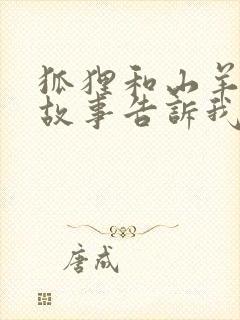 狐狸和山羊
故事告訴我
唐成